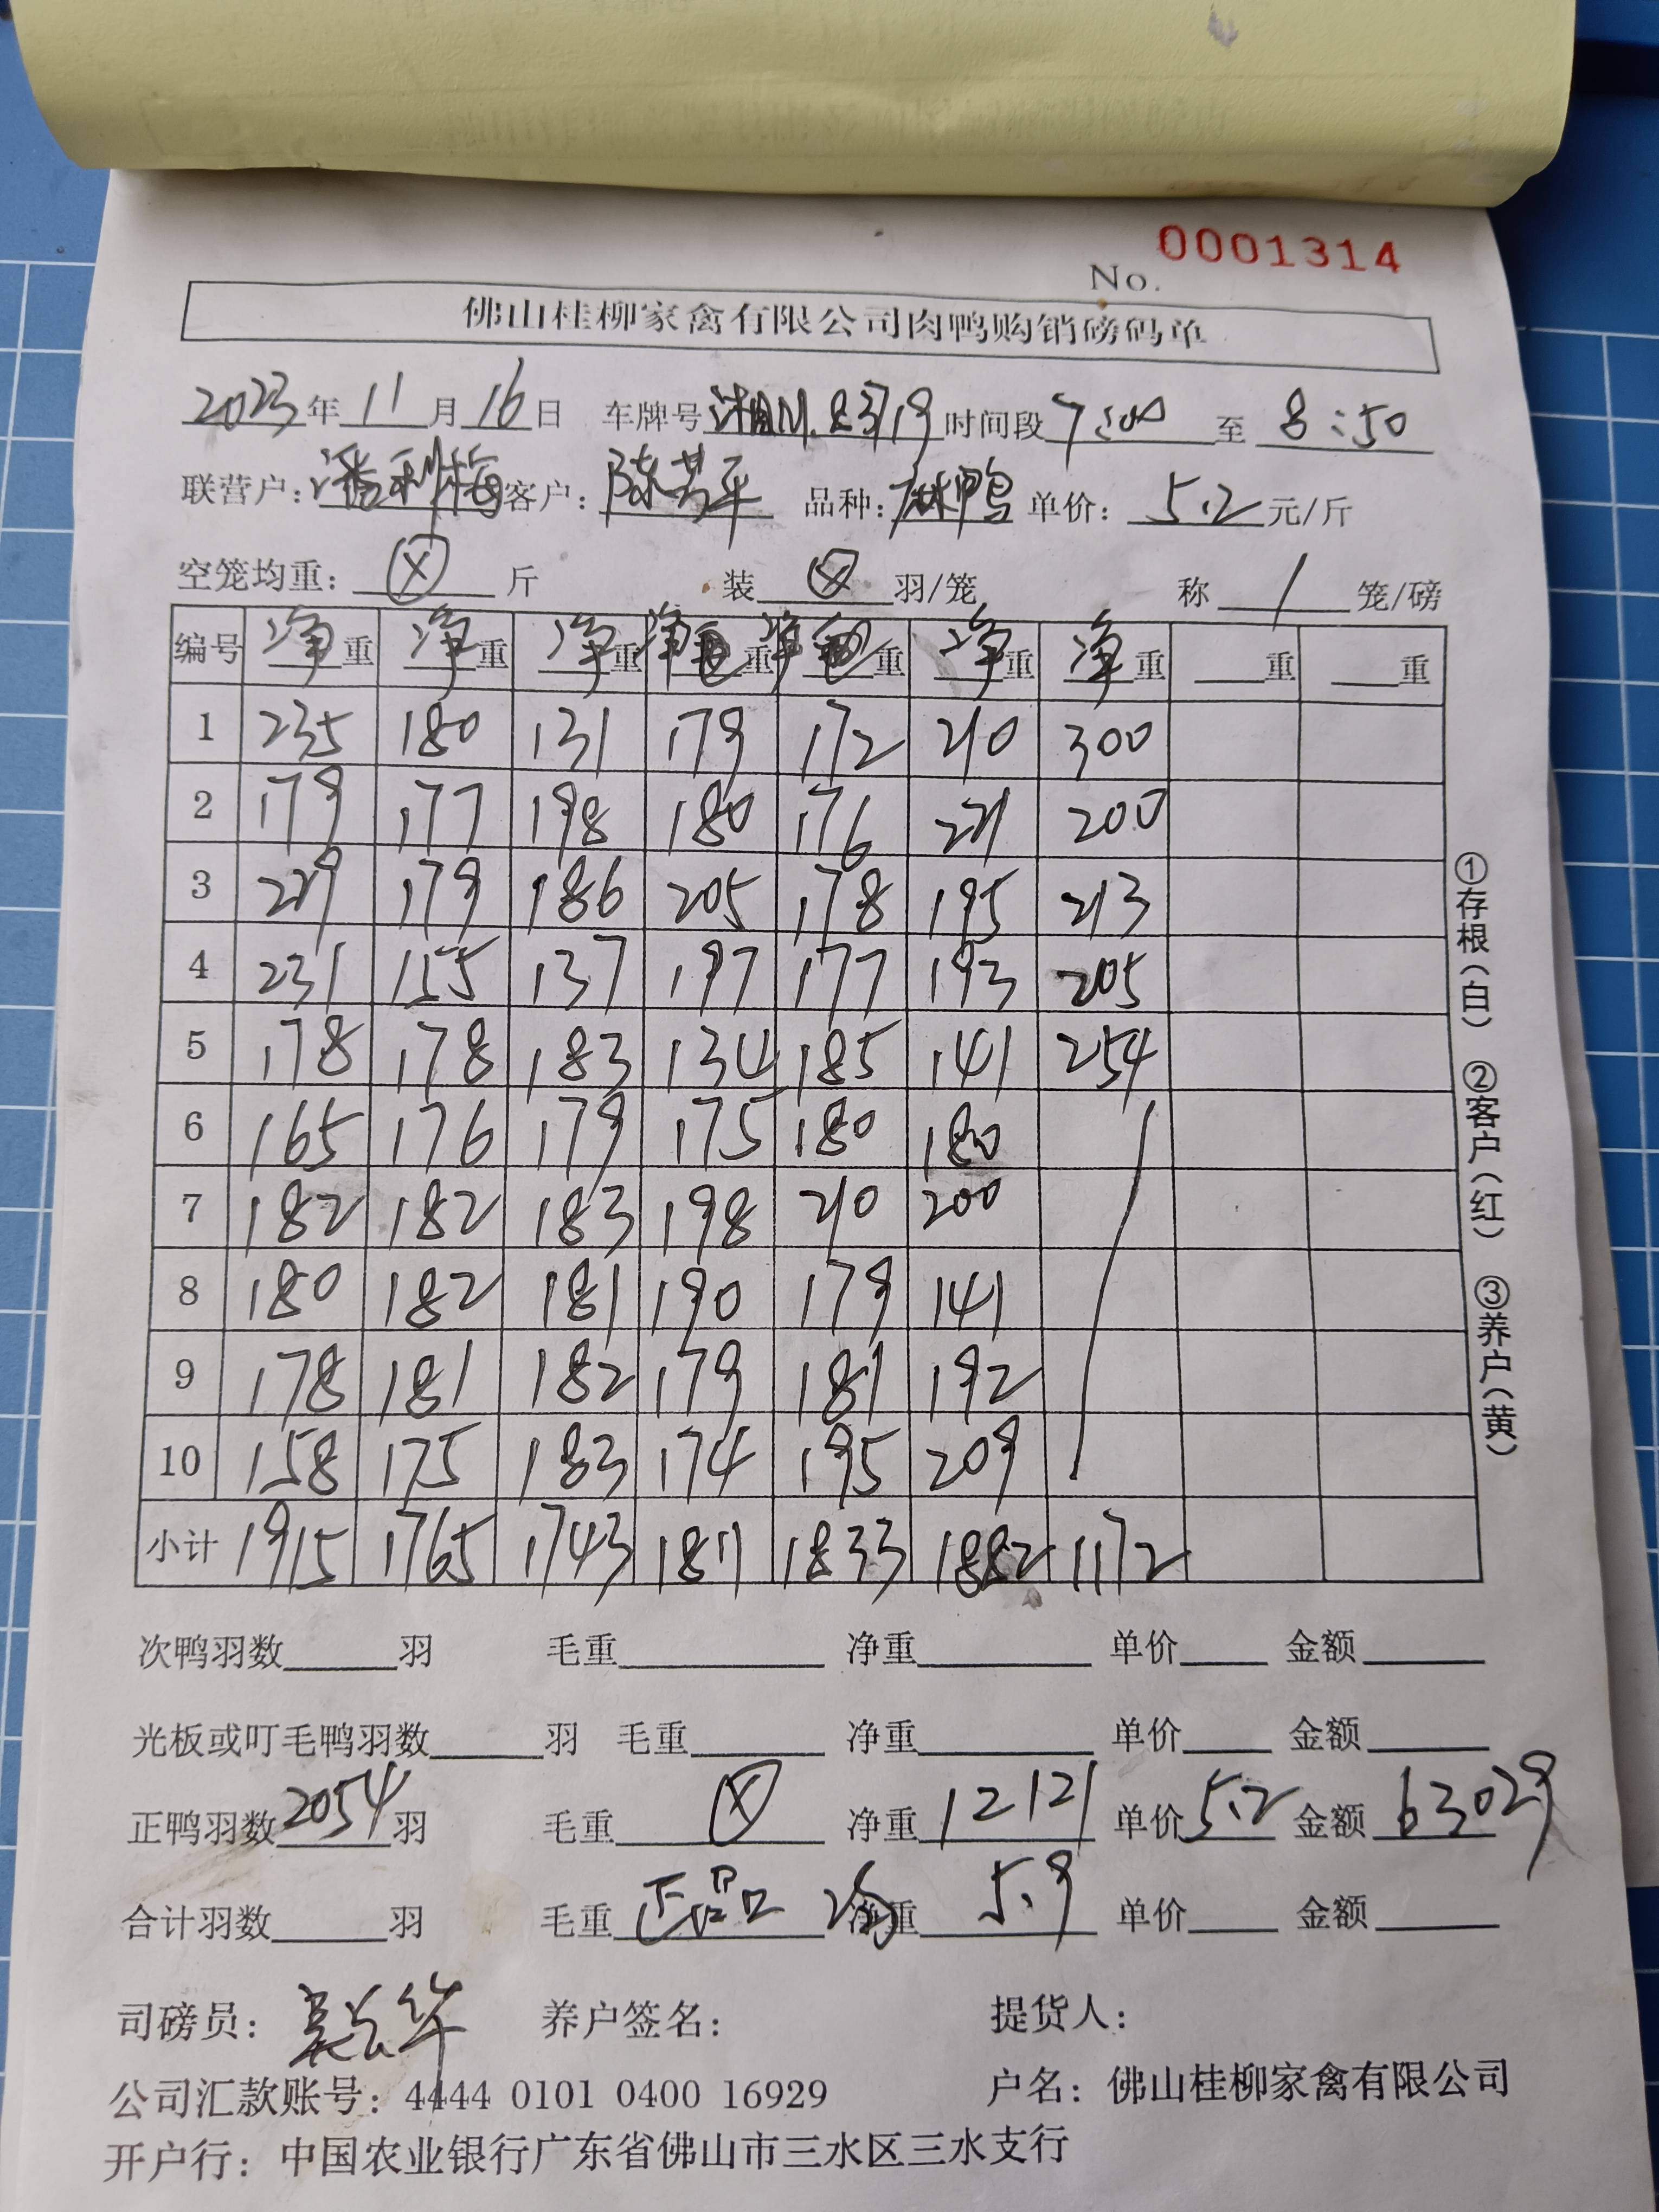 No. 0001314
佛山桂柳家禽有限公司肉鸭购销磅码单
2023年11月16日 车牌号 时间段7:00至8:50
联营户:潘利梅 客户: 品种:麻鸭 单价:5.2元/斤
空笼均重:ⓧ斤 装ⓧ羽/笼 称/笼/磅
编号 净重 净重 净重 净重 净重 净重 净重 重 重
1 235 180 131 179 172 210 300
2 179 177 198 180 176 221 200
3 229 179 186 205 178 195 213
4 231 155 137 197 177 193 205
5 178 178 183 134 185 141 254
6 165 176 179 175 180 180
7 182 182 183 198 210 200
8 180 182 181 190 179 141
9 178 181 182 179 181 192
10 158 175 183 174 195 209
小计 1915 1765 1743 1811 1833 1882 1172
①存根(白) ②客户(红) ③养户(黄)
次鸭羽数 羽 毛重 净重 单价 金额
光板或叮毛鸭羽数 羽 毛重 净重 单价 金额
正鸭羽数2054羽 毛重ⓧ 净重12121 单价5.2 金额63029
合计羽数 羽 毛重正品 净重5.9 单价 金额
司磅员: 养户签名: 提货人:
公司汇款账号: 4444 0101 0400 16929 户名: 佛山桂柳家禽有限公司
开户行: 中国农业银行广东省佛山市三水区三水支行